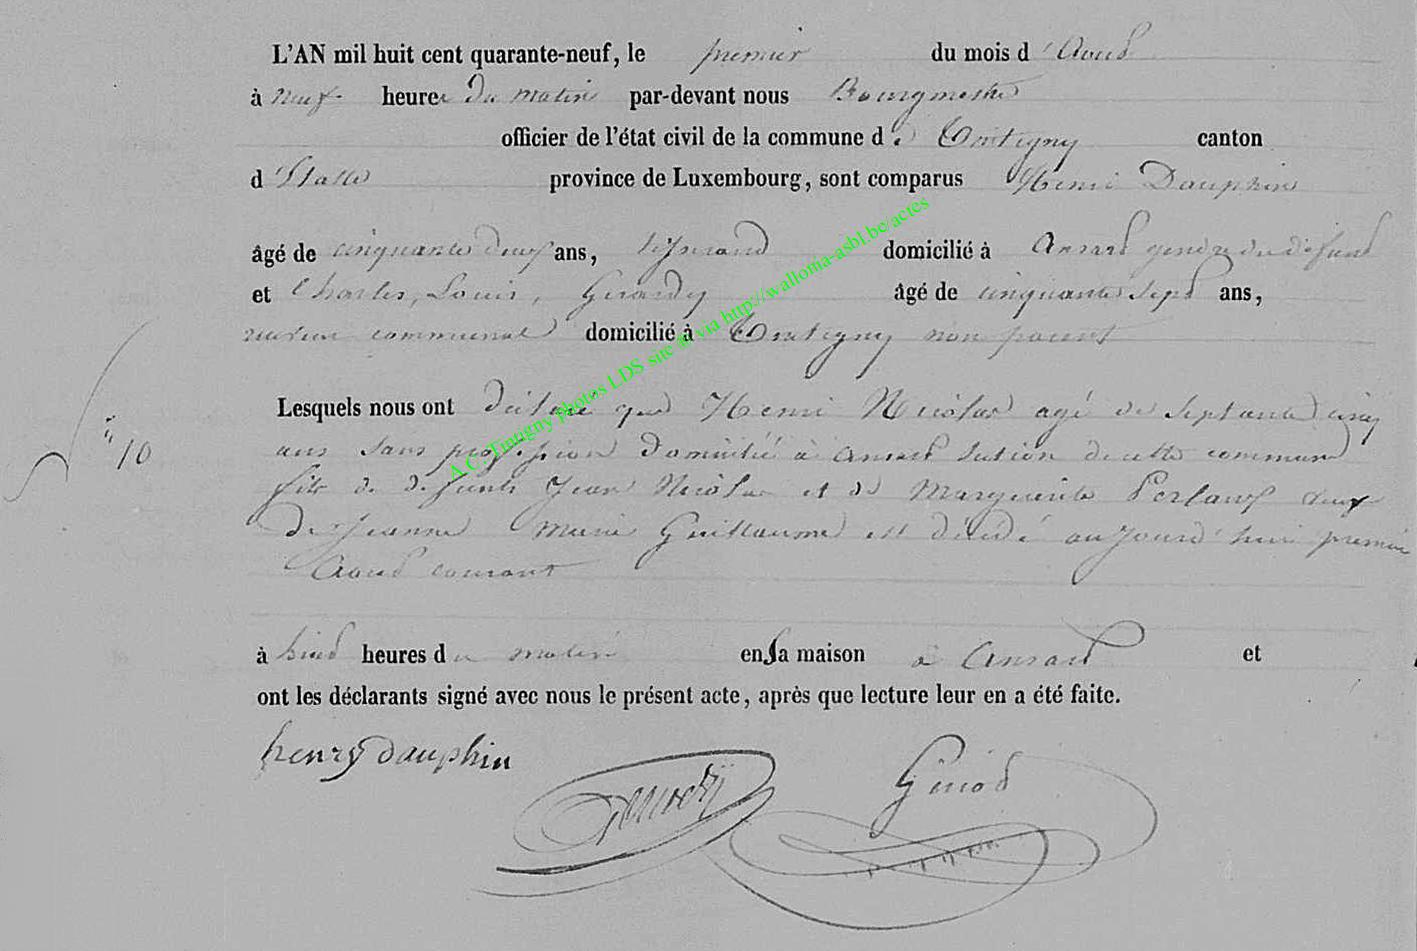 L'AN mil huit cent quarante-neuf, le premier du mois d'Aoud
à neuf heures du matin par-devant nous Bourgmestre
officier de l'état civil de la commune de Tintigny canton
d'Etalle province de Luxembourg, sont comparus Henri Dauphin
âgé de cinquante deux ans, domicilié à Ansard gendre du défund
et Charles, Louis, Gerardy âgé de cinquante sept ans,
receveur communal domicilié à Tintigny non parent
Lesquels nous ont déclaré que Henri Nicolas agé de septante cinq
ans sans profession domicilié à Ansart section de cette commune
fils de defunts Jean Nicolas et de Marguerite veuf
de Jeanne Marie Guillaume est décédé aujourd'hui premier
Aoud courant
à huid heures du matin en sa maison à Ansard et
ont les déclarants signé avec nous le présent acte, après que lecture leur en a été faite.
"10
henry dauphin
Gerardy
A.C. Tintigny photos LDS sur @ via http://wallonia-asbl.be/actes